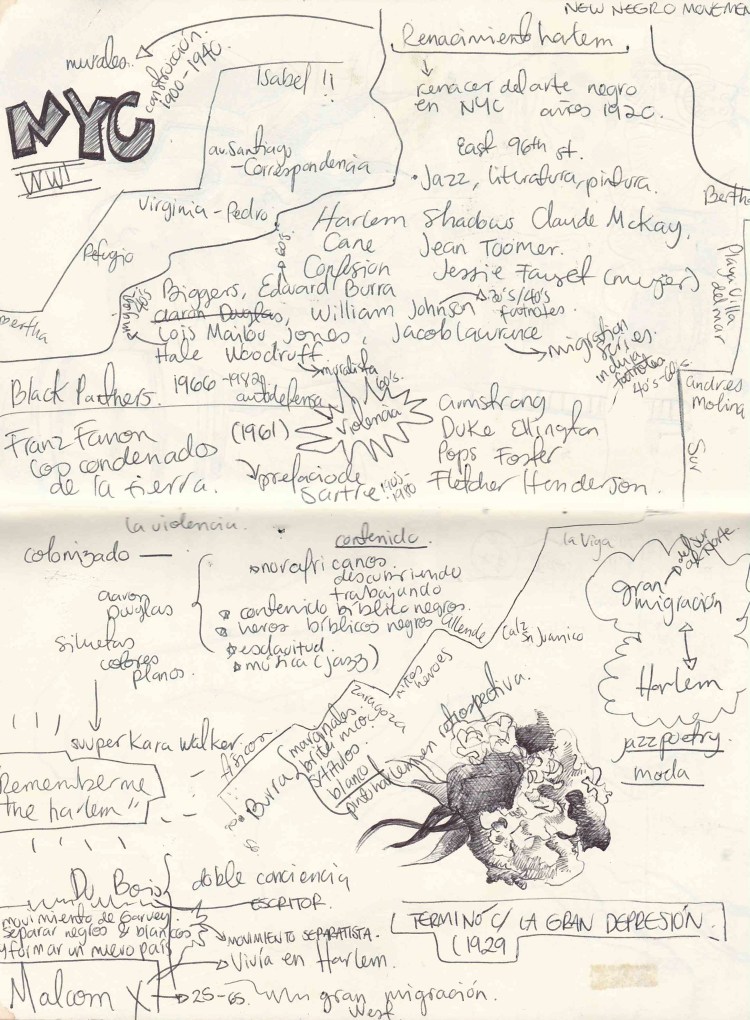 NEW NEGRO MOVEMEN
Renacimiento harlem.
murales.
construcción
1900-1940.
NYC
WWI
Isabel !!
renacer del arte negro
en NYC años 1920.
East 96th st.
• Jazz, literatura, pintura.
av. Santiago
-Correspondencia
Virginia - Pedro
Refugio
bertha
Bertha
Playa Villa
del mar
Harlem Shadows Claude McKay.
Cane Jean Toomer.
Confusion Jessie Fauset (mujer)
60's.
40's
Biggers, Edward Burra
aaron Douglas, William Johnson → 30's/40's
footnotes.
Lois Mailou Jones, Jacob Lawrence
Hale Woodruff
→ muralista
→ migration
series.
40's-60's.
Black Panthers. 1966-1982
autodefensa
60's.
Violencia
andres
molina
Sur
Franz Fanon (1961)
los condenados
de la tierra.
prefacio de
Sartre 1905-
1980
armstrong
Duke Ellington
Pops Foster
Fletcher Henderson.
la violencia.
colonizado —
contenido
descubriendo
trabajando
contenido bíblico negros.
heros bíblicos negros
esclavitud.
música (jazz)
aaron
siluetas
colores
planos.
super Kara Walker.
la Viga
Allende
Calz.
Sn Juanico
niños
héroes
Zaragoza
gran
migración
del sur
al norte.
Harlem
jazz poetry.
moda
"Remember me
the harlem"
Burra
marginales
británico
s/títulos.
blanco
pintó harlem en retrospectiva.
Du Bois
doble conciencia
ESCRITOR.
movimiento de Garvey.
separar negros & blancos
y formar un nuevo país
MOVIMIENTO SEPARATISTA.
Vivía en Harlem.
Malcom X
→ 25-65. gran migración.
West
TERMINÓ C/ LA GRAN DEPRESIÓN
(1929